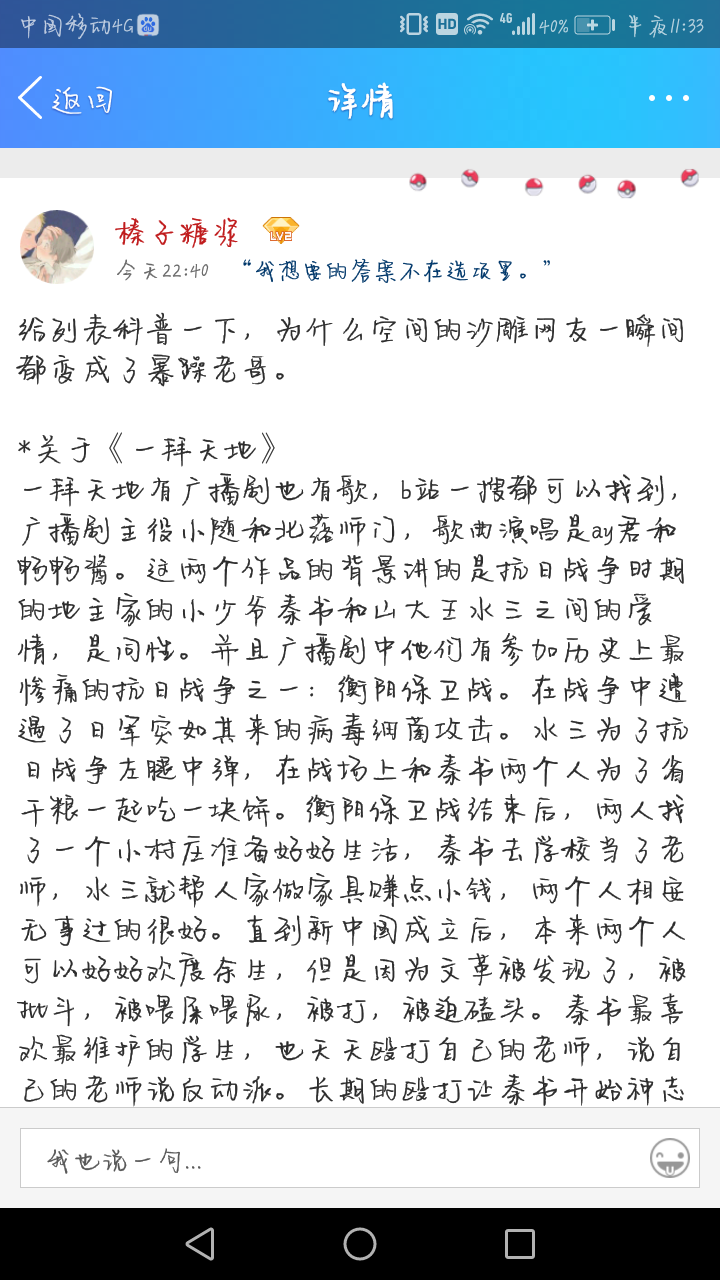 中国移动4G HD 4G 40% 半夜11:33
返回 详情
榛子糖浆 LV2
今天22:40 “我想要的答案不在选项里。”
给列表科普一下，为什么空间的沙雕网友一瞬间
都变成了暴躁老哥。
*关于《一拜天地》
一拜天地有广播剧也有歌，b站一搜都可以找到，
广播剧主役小随和北落师门，歌曲演唱是ay君和
畅畅酱。这两个作品的背景讲的是抗日战争时期
的地主家的小少爷秦书和山大王水三之间的爱
情，是同性。并且广播剧中他们有参加历史上最
惨痛的抗日战争之一：衡阳保卫战。在战争中遭
遇了日军突如其来的病毒细菌攻击。水三为了抗
日战争左腿中弹，在战场上和秦书两个人为了省
干粮一起吃一块饼。衡阳保卫战结束后，两人找
了一个小村庄准备好好生活，秦书去学校当了老
师，水三就帮人家做家具赚点小钱，两个人相安
无事过的很好。直到新中国成立后，本来两个人
可以好好欢度余生，但是因为文革被发现了，被
批斗，被喂屎喂尿，被打，被迫磕头。秦书最喜
欢最维护的学生，也天天殴打自己的老师，说自
己的老师说反动派。长期的殴打让秦书开始神志
我也说一句...